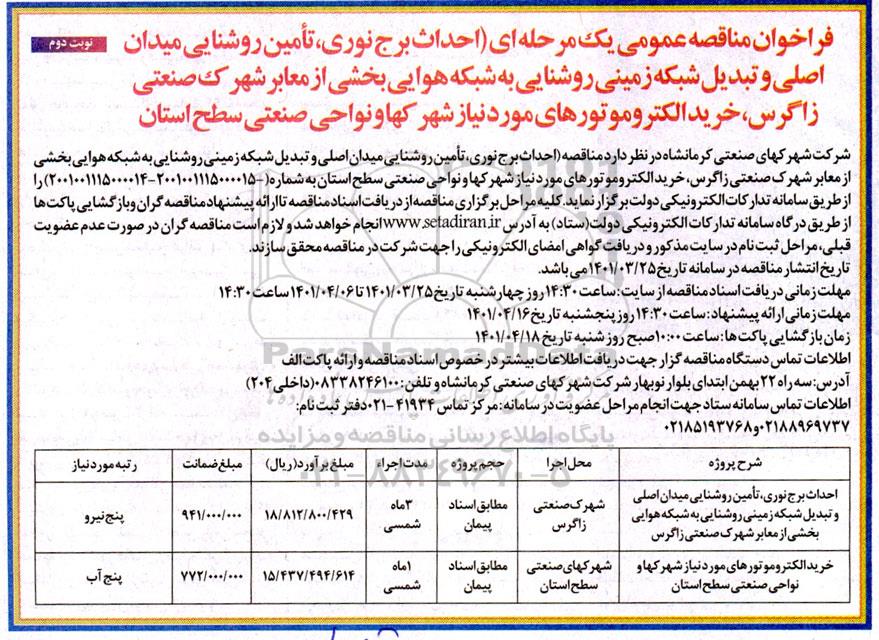 نوبت دوم
فراخوان مناقصه عمومی یک مرحله ای (احداث برج نوری، تأمین روشنایی میدان
اصلی و تبدیل شبکه زمینی روشنایی به شبکه هوایی بخشی از معابر شهرک صنعتی
زاگرس، خرید الکتروموتورهای مورد نیاز شهرکها و نواحی صنعتی سطح استان
شرکت شهرکهای صنعتی کرمانشاه در نظر دارد مناقصه (احداث برج نوری، تأمین روشنایی میدان اصلی و تبدیل شبکه زمینی روشنایی به شبکه هوایی بخشی
از معابر شهرک صنعتی زاگرس، خرید الکتروموتورهای مورد نیاز شهرکها و نواحی صنعتی سطح استان به شماره (۲۰۰۱۰۰۱۱۱۵۰۰۰۰۱۵-۲۰۰۱۰۰۱۱۱۵۰۰۰۰۱۴-) را
از طریق سامانه تدارکات الکترونیکی دولت برگزار نماید. کلیه مراحل برگزاری مناقصه از دریافت اسناد مناقصه تا ارائه پیشنهاد مناقصه گران و بازگشایی پاکت ها
از طریق درگاه سامانه تدارکات الکترونیکی دولت (ستاد) به آدرس www.setadiran.ir انجام خواهد شد و لازم است مناقصه گران در صورت عدم عضویت
قبلی، مراحل ثبت نام در سایت مذکور و دریافت گواهی امضای الکترونیکی را جهت شرکت در مناقصه محقق سازند.
تاریخ انتشار مناقصه در سامانه تاریخ ۱۴۰۱/۰۳/۲۵ می باشد.
مهلت زمانی دریافت اسناد مناقصه از سایت: ساعت ۱۴:۳۰ روز چهارشنبه تاریخ ۱۴۰۱/۰۳/۲۵ تا ۱۴۰۱/۰۴/۰۶ ساعت ۱۴:۳۰
مهلت زمانی ارائه پیشنهاد: ساعت ۱۴:۳۰ روز پنجشنبه تاریخ ۱۴۰۱/۰۴/۱۶
زمان بازگشایی پاکت ها: ساعت ۱۰:۰۰ صبح روز شنبه تاریخ ۱۴۰۱/۰۴/۱۸
اطلاعات تماس دستگاه مناقصه گزار جهت دریافت اطلاعات بیشتر در خصوص اسناد مناقصه و ارائه پاکت الف
آدرس: سه راه ۲۲ بهمن ابتدای بلوار نوبهار شرکت شهرکهای صنعتی کرمانشاه و تلفن: ۰۸۳۳۸۲۴۶۱۰۰ (داخلی ۲۰۴)
اطلاعات تماس سامانه ستاد جهت انجام مراحل عضویت در سامانه: مرکز تماس ۴۱۹۳۴-۰۲۱ دفتر ثبت نام:
۰۲۱۸۸۹۶۹۷۳۷ و ۰۲۱۸۵۱۹۳۷۶۸
ParsNamadData
پایگاه اطلاع رسانی مناقصه و مزایده
۰۲۱-۸۸۳۴۹۶۷۰-۵
شرح پروژه محل اجرا حجم پروژه مدت اجراء مبلغ برآورد (ریال) مبلغ ضمانت رتبه مورد نیاز
احداث برج نوری، تأمین روشنایی میدان اصلی
و تبدیل شبکه زمینی روشنایی به شبکه هوایی
بخشی از معابر شهرک صنعتی زاگرس
شهرک صنعتی
زاگرس
مطابق اسناد
پیمان
۳ماه
شمسی
۱۸/۸۱۲/۸۰۰/۴۲۹
۹۴۱/۰۰۰/۰۰۰
پنج نیرو
خرید الکتروموتورهای مورد نیاز شهرکها و
نواحی صنعتی سطح استان
شهرکهای صنعتی
سطح استان
مطابق اسناد
پیمان
۱ماه
شمسی
۱۵/۴۳۷/۴۹۴/۶۱۴
۷۷۲/۰۰۰/۰۰۰
پنج آب